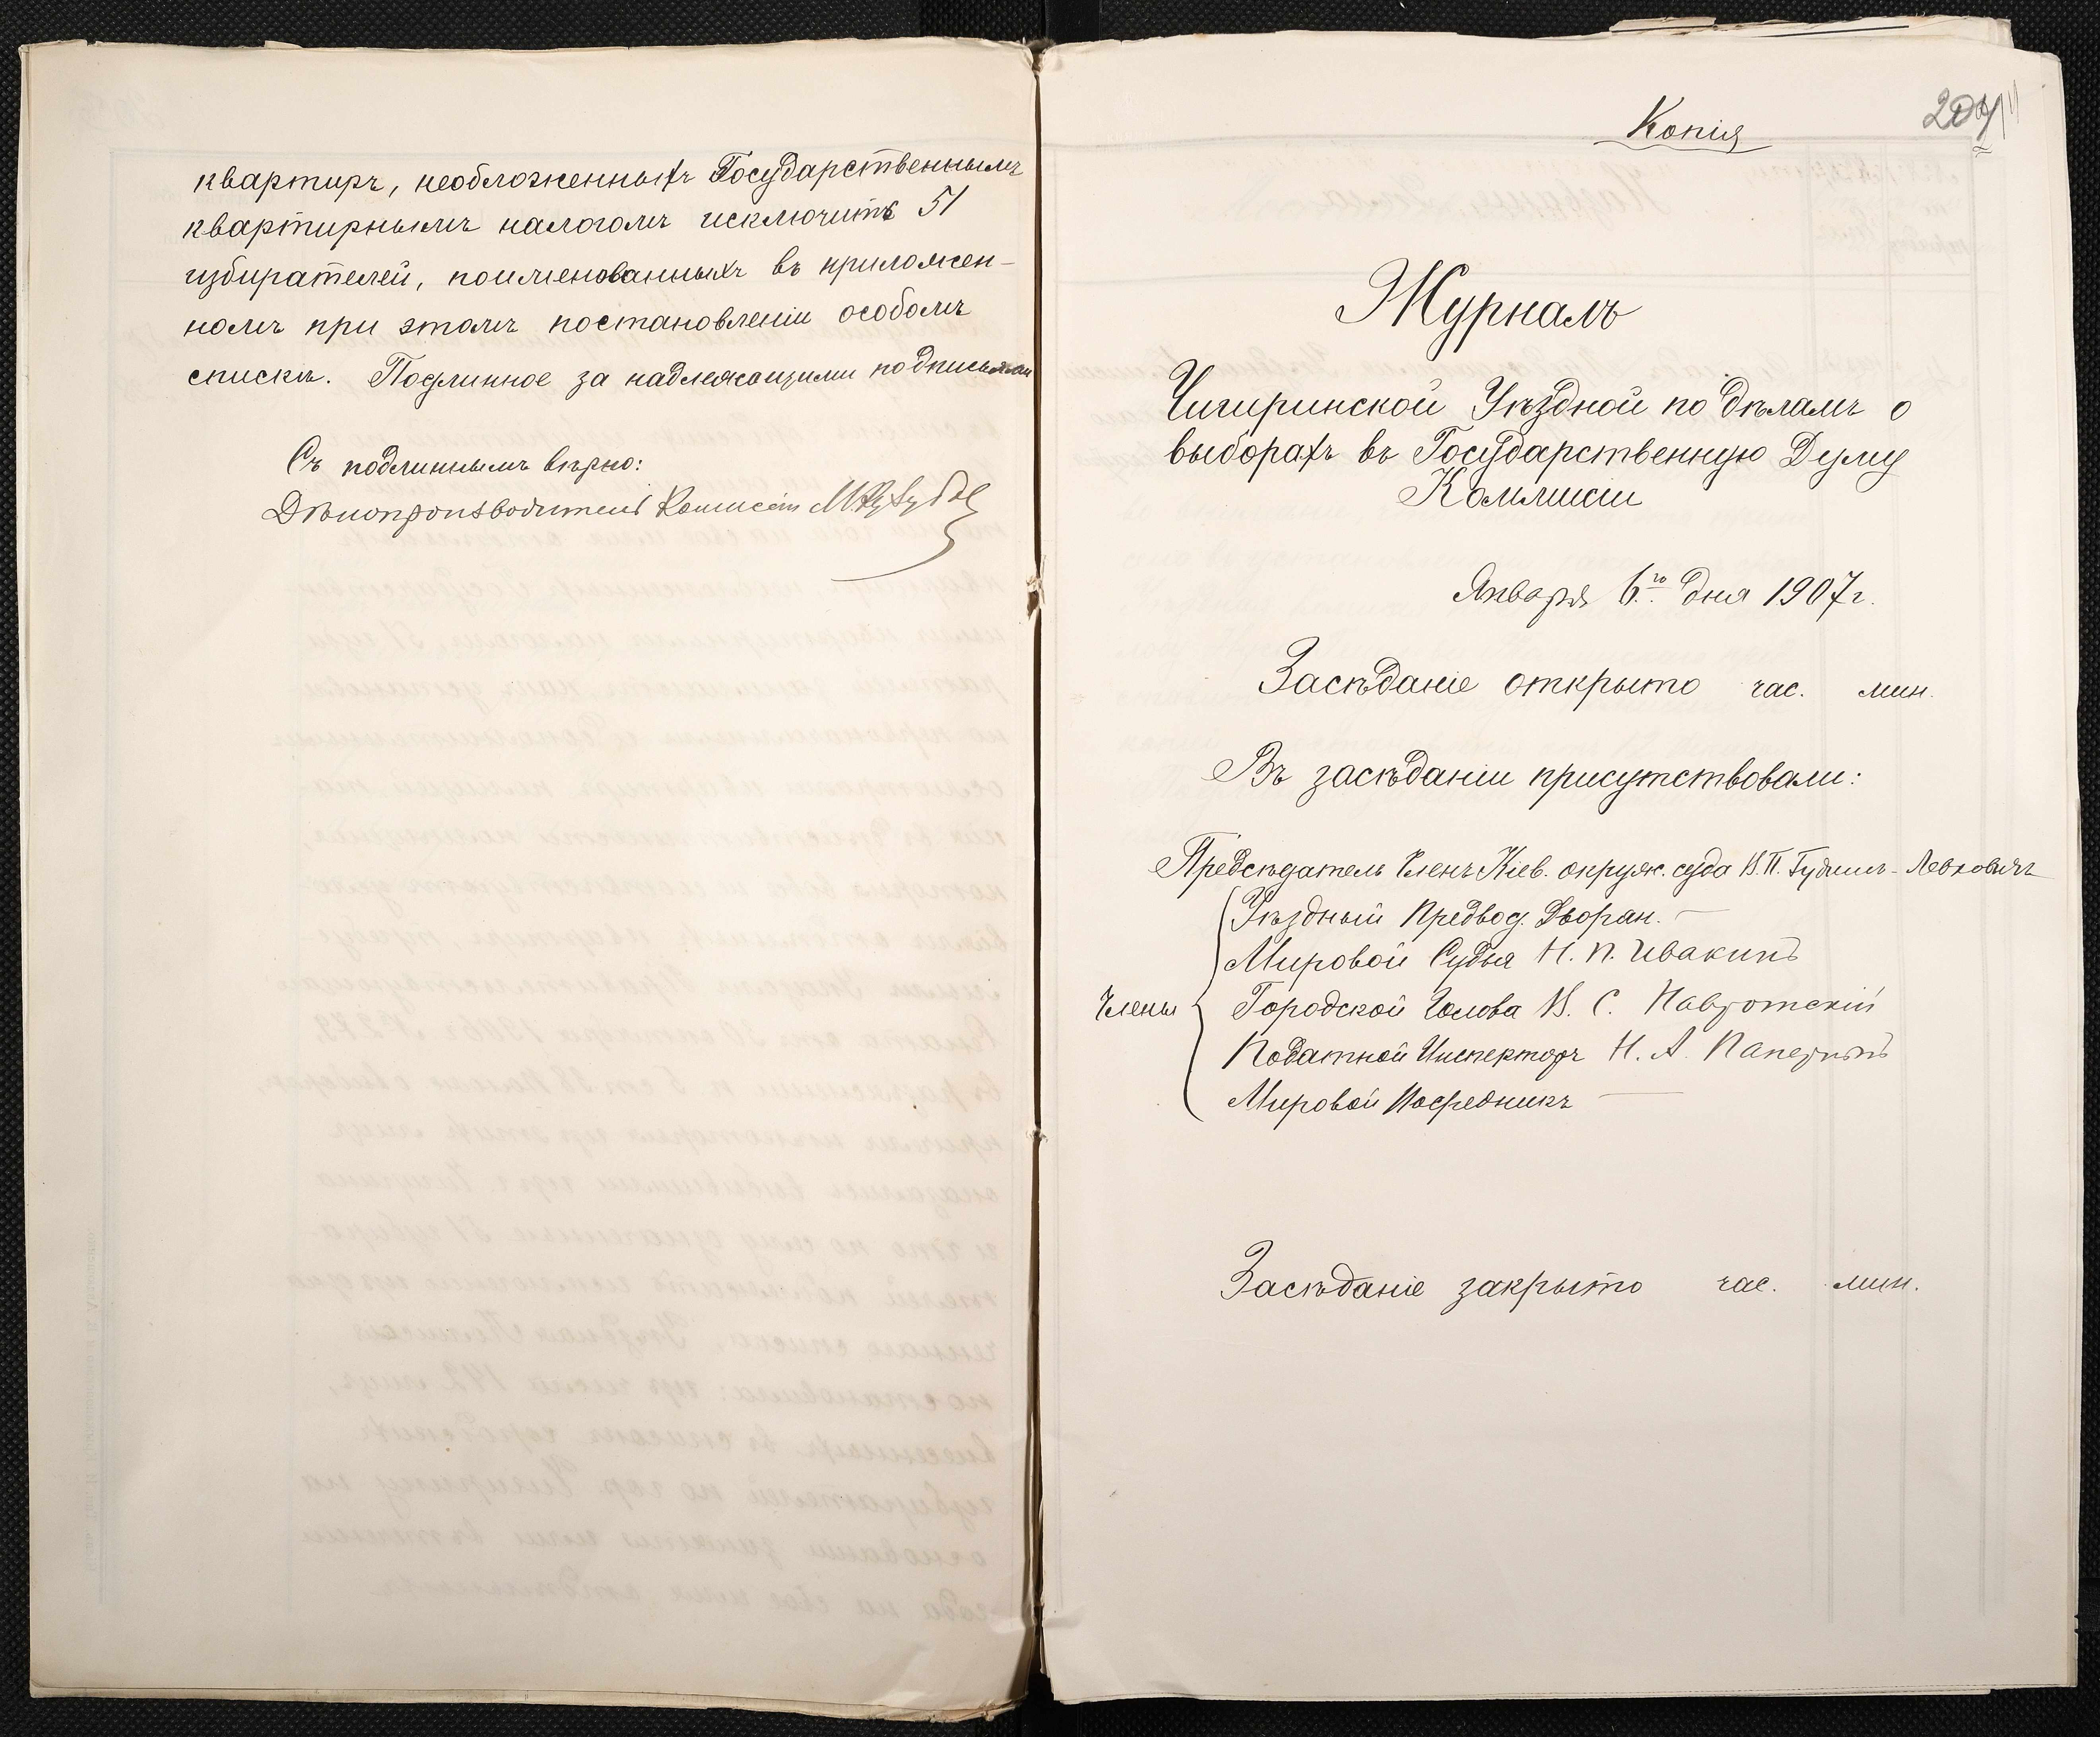 квартиръ, необложенныхъ Государственнымъ
квартирнымъ налогомъ исключить 51
избирателей, поименованныхъ въ приложен-
номъ при этомъ постановленіи особомъ
спискѣ. Подлинное за надлежащими подписями
Съ подлиннымъ вѣрно:
Дѣлопроизводитель Комисіи
Копія
Журналъ
Чигиринской Уѣздной по дѣламъ о
выборахъ въ Государственную Думу
Коммисіи
Января 6го дня 1907 г.
Засѣданіе открыто час. мин.
Въ засѣданіи присутствовали:
Предсѣдатель Членъ Кіев. окруж. суда В. П. Гудимъ-Левковичъ
Уѣздный Предвод. Дворян. —
Мировой Судья Н. П. Ивакинъ
Члены
Городской Голова В. С. Навротскій
Податной Инспекторъ Н. А.
Мировой Посредникъ —
Засѣданіе закрыто час. мин.